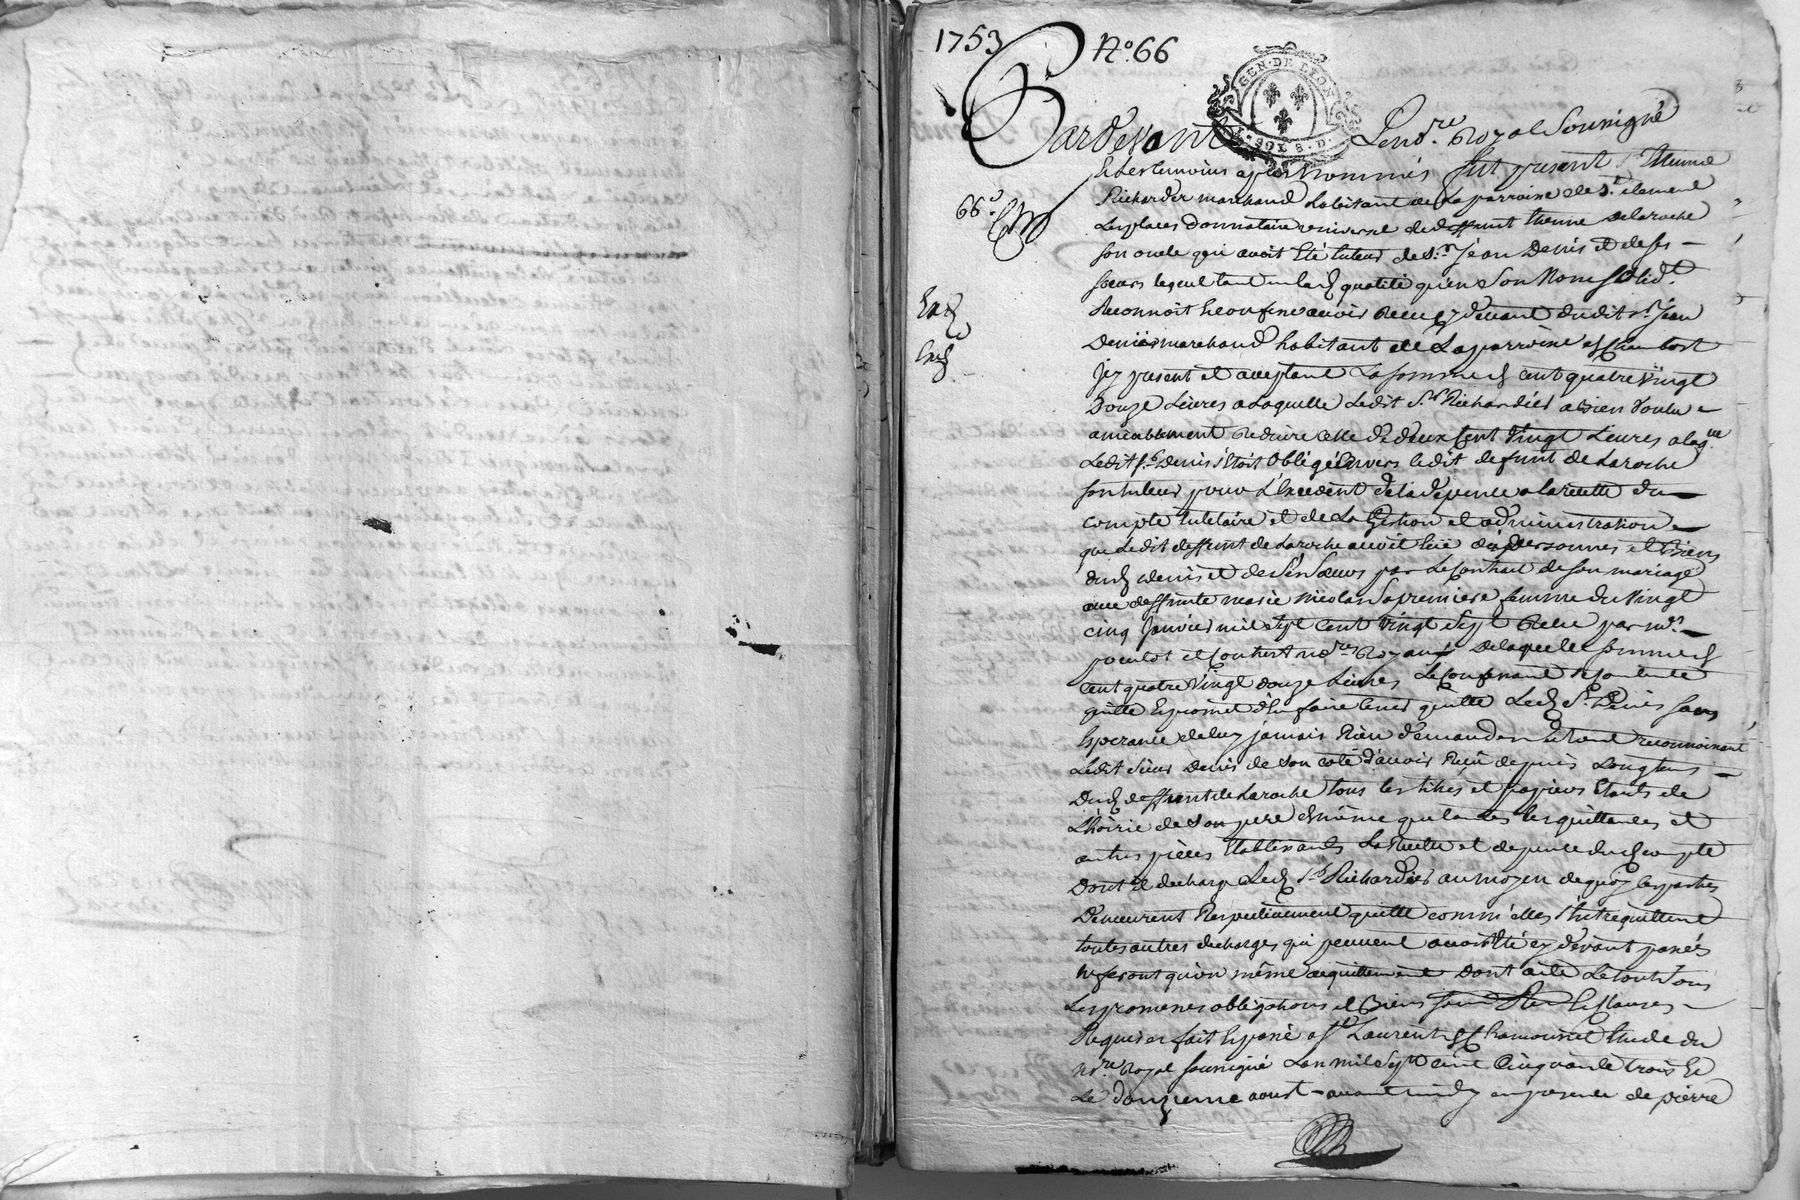 1753 No. 66
GEN. DE LYON
SOLS. D.
Pardevant Le no.re Royal Soussigné
Et les temoins apres nommés fut present S.r Etienne
66.e
Richardier marchand habitant de la parroisse de S.t Clement
Les places donnataire universel de deffunt Etienne Delaroche
son oncle qui avoit été tuteur de S.r jean Denis et de ses
soeurs lequel tant en lad. qualité qu'en Son Nom solid.t
Reconnoit et confesse avoir Receu cy devant dudit S.r jean
Denis marchand habitant de La parroisse
jcy present et acceptant La somme de cent quatre Vingt
Douze Livres a Laquelle Ledit S.r Richardier a bien Voulu
amiablement Reduire Celle de deux Cent Vingt Livres a laq.lle
Ledit S.r Denis s'étoit Obligé Envers ledit defunt de Laroche
son tuteur pour L'Excedent de la depence a la recette du
compte tutelaire et de La Gestion et administration
que Ledit deffunt de Laroche avoit Eüe des personnes et Biens
dud. Denis et de Ses Soeurs par Le Contract de son mariage
avec deffunte marie nicolas Sa premiere femme du Vingt
cinq Janvier mil Sept Cent Vingt Sept Receu par m.es
et no.res Royaux De laquelle somme de
Cent quatre Vingt douze Livres Le Confessant se contente
quitte Et promet d'En faire tenir quitte Led. S.r Denis sans
Esperance de luy jamais Rien demander Et tout reconnoissant
Ledit Sieur Denis de Son coté d'avoir Reçu depuis Longtems
Dud. deffunt de Laroche tous les titres et papiers Etants de
L'hoirie de Son pere de même que toutes les quittances et
autres pieces Etablissants La Recette et depence dud. compte
Dont Il decharge Led. S.r Richardier au moyen de quoy les parties
Demeurent Respectivement quitte comm'elles S'entrequittent
toutes autres decharges qui peuvent avoir Eté cy devant passées
ne feront qu'un même acquittement Dont acte Le tout Sous
Les promesses obligations et Biens Clauses
Requises fait Et passé a S.t Laurent de Chamousset Etude du
no.re Royal soussigné L'an mil Sept Cent Cinquante trois Et
Le Douzieme aoust avant midy en presence de pierre